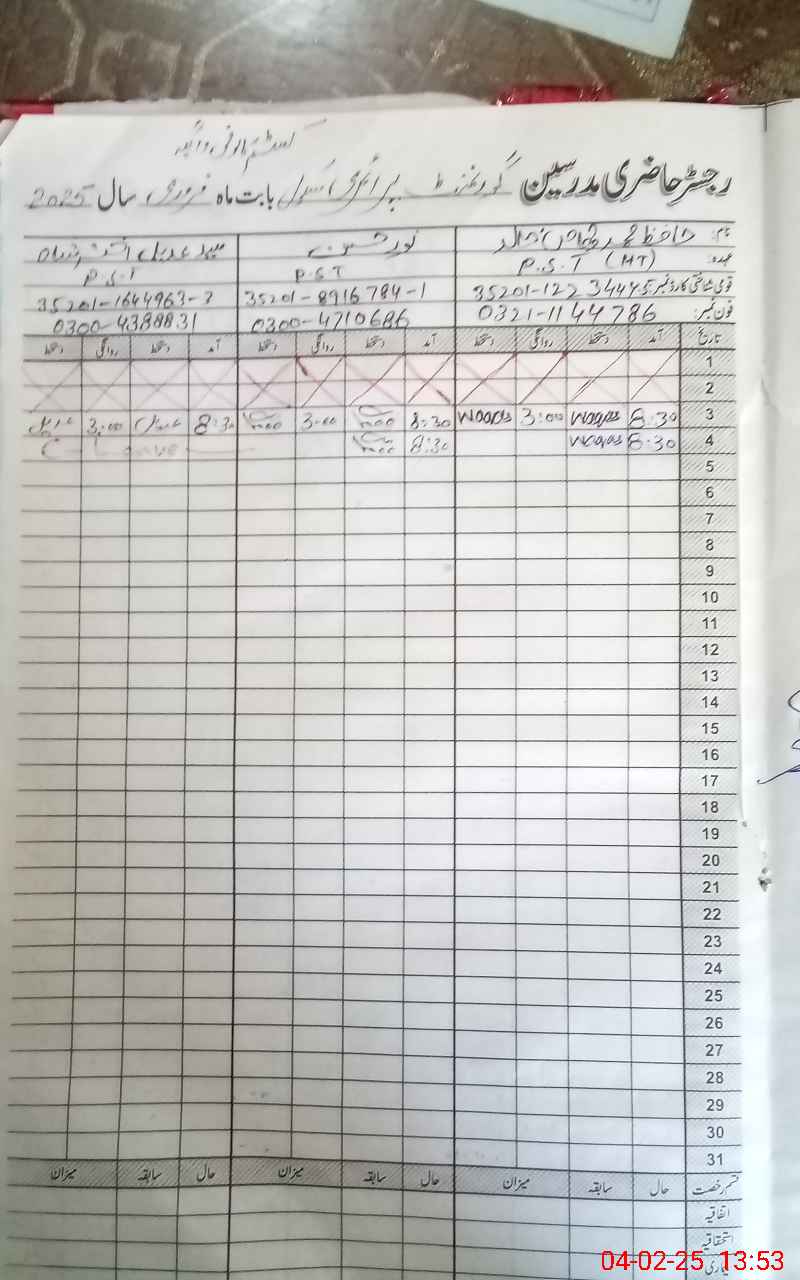 رجسٹر حاضری مدرسین گورنمنٹ پرائمری سکول بابت ماہ فروری سال 2025
نام: حافظ محمد وقاص خالد نور حسین سید عدیل
عہدہ: P.S.T (HT) P.S.T P.S.T
قومی شناختی کارڈ نمبر 35201-8916784-1 35201-1644963-3
فون نمبر: 0321-1144786 0300-4710686 0300-4388831
تاریخ آمد دستخط روانگی دستخط آمد دستخط روانگی دستخط آمد دستخط روانگی دستخط
1
2
3 8:30 Waqas 3:00 Waqas 8:30 3:00 8:30 عدیل 3:00 عدیل
4 8:30 Waqas 8:30 C - Leave
5
6
7
8
9
10
11
12
13
14
15
16
17
18
19
20
21
22
23
24
25
26
27
28
29
30
31
قسم رخصت حال سابقہ میزان حال سابقہ میزان حال سابقہ میزان
اتفاقیہ
استحقاقیہ
بیماری
04-02-25 13:53